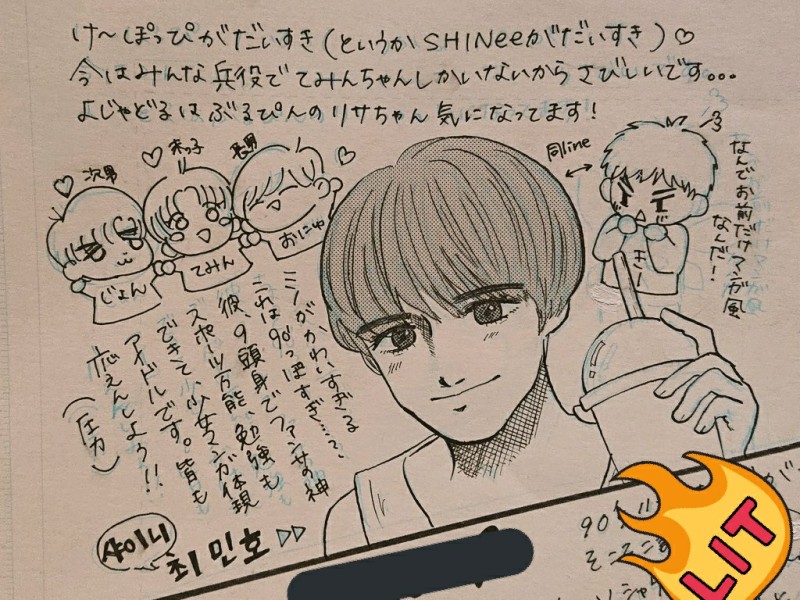 け〜ぽっぴがだいすき(というかSHINeeがだいすき)♡
今はみんな兵役でてみんちゃんしかいないからさびしいです...
よじゃどるはぶるぴんのリサちゃん気になってます!
次男
末っ子
長男
じょん
てみん
おにゅ
同line
なんでお前だけマンガ風
なんだ!
きー
ミノがかわいすぎる
これは90'っぽすぎ…?
彼、9頭身でファンサの神
スポーツ万能、勉強も
できて、少女マンガ体現
アイドルです。皆も
応えんしよう!!
(圧力)
샤이니
최민호
90
LIT